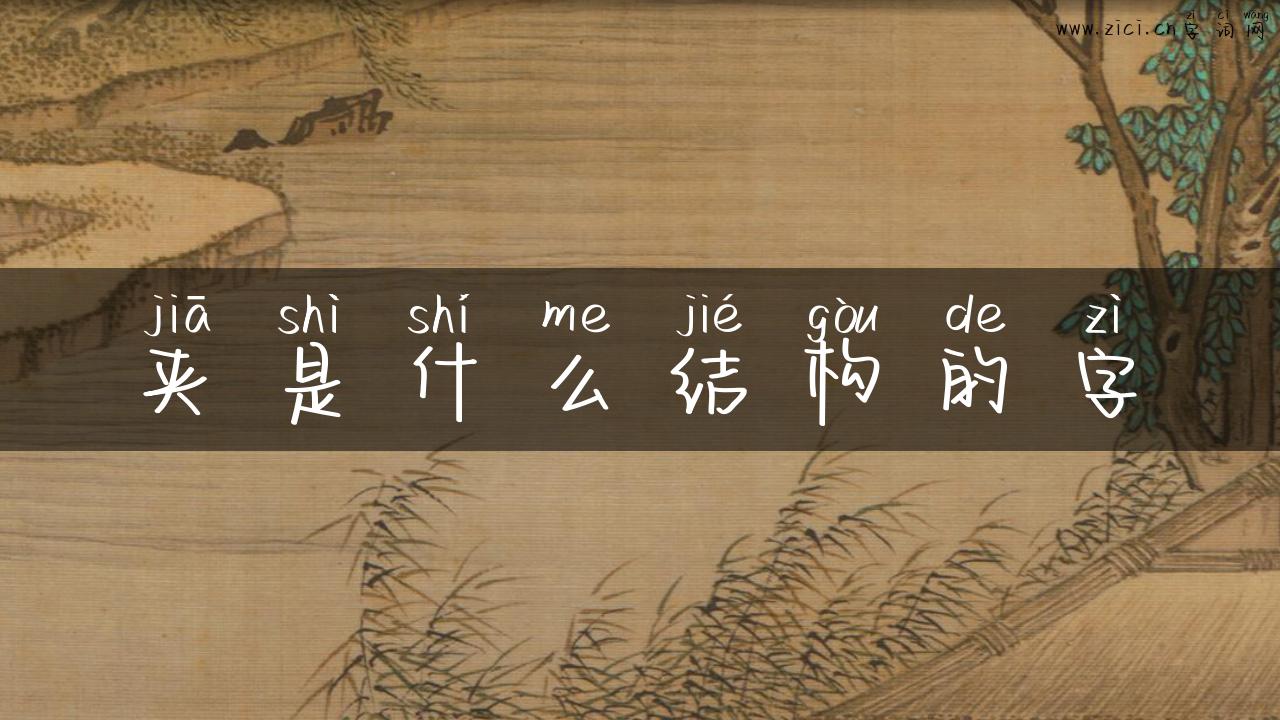 zì cí wǎng
www.zici.cn字词网
jiā shì shí me jié gòu de zì
夹是什么结构的字